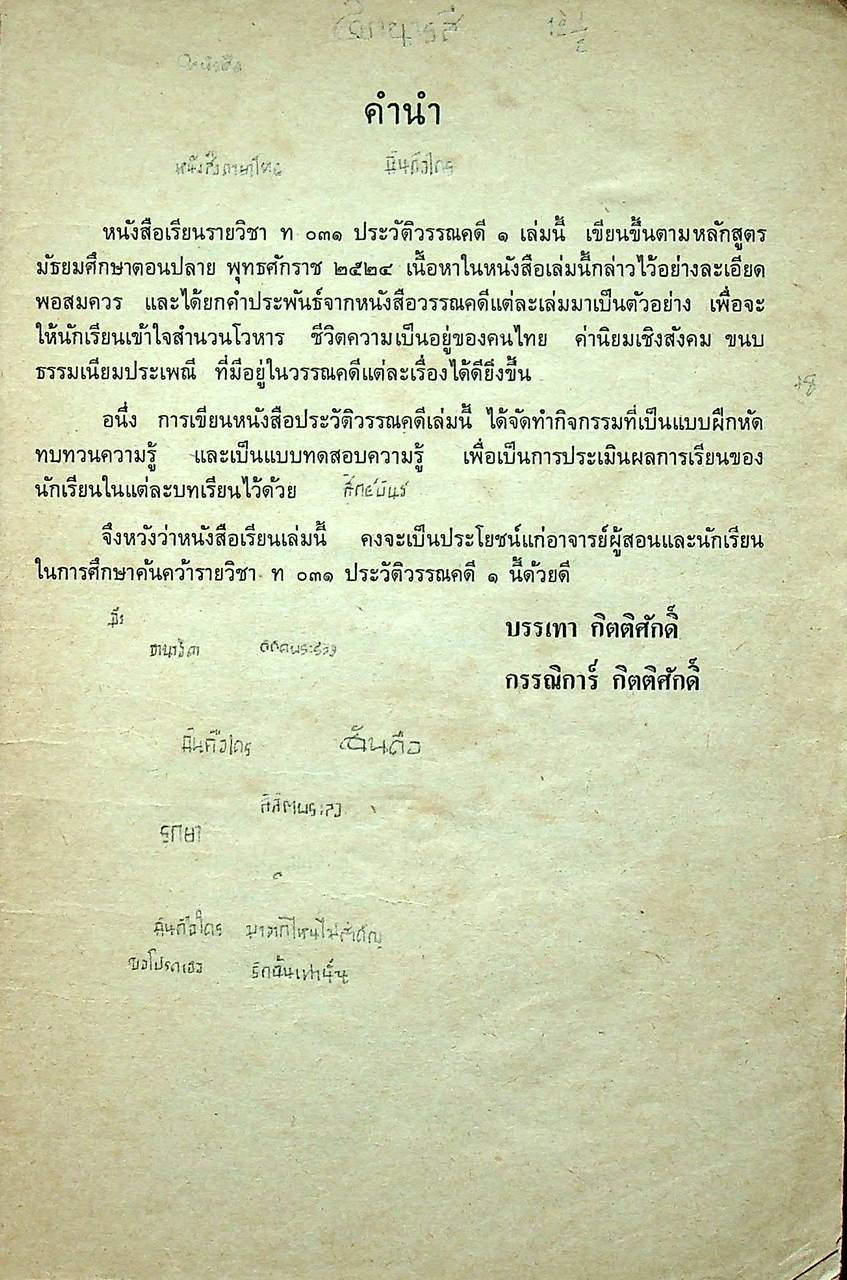 หนังสือ
คำนำ
ฉันคือใคร
หนังสือเรียนรายวิชา ท ๐๓๑ ประวัติวรรณคดี ๑ เล่มนี้ เขียนขึ้นตามหลักสูตร
มัธยมศึกษาตอนปลาย พุทธศักราช ๒๕๒๔ เนื้อหาในหนังสือเล่มนี้กล่าวไว้อย่างละเอียด
พอสมควร และได้ยกคำประพันธ์จากหนังสือวรรณคดีแต่ละเล่มมาเป็นตัวอย่าง เพื่อจะ
ให้นักเรียนเข้าใจสำนวนโวหาร ชีวิตความเป็นอยู่ของคนไทย ค่านิยมเชิงสังคม ขนบ
ธรรมเนียมประเพณี ที่มีอยู่ในวรรณคดีแต่ละเรื่องได้ดียิ่งขึ้น
อนึ่ง การเขียนหนังสือประวัติวรรณคดีเล่มนี้ ได้จัดทำกิจกรรมที่เป็นแบบฝึกหัด
ทบทวนความรู้ และเป็นแบบทดสอบความรู้ เพื่อเป็นการประเมินผลการเรียนของ
นักเรียนในแต่ละบทเรียนไว้ด้วย
จึงหวังว่าหนังสือเรียนเล่มนี้ คงจะเป็นประโยชน์แก่อาจารย์ผู้สอนและนักเรียน
ในการศึกษาค้นคว้ารายวิชา ท ๐๓๑ ประวัติวรรณคดี ๑ นี้ด้วยดี
บรรเทา กิตติศักดิ์
กรรณิการ์ กิตติศักดิ์
ฉันคือใคร ฉันคือ
ฉันคือใคร มาจากไหนไม่สำคัญ
ขอโปรดเธอ รักฉันเท่านั้น